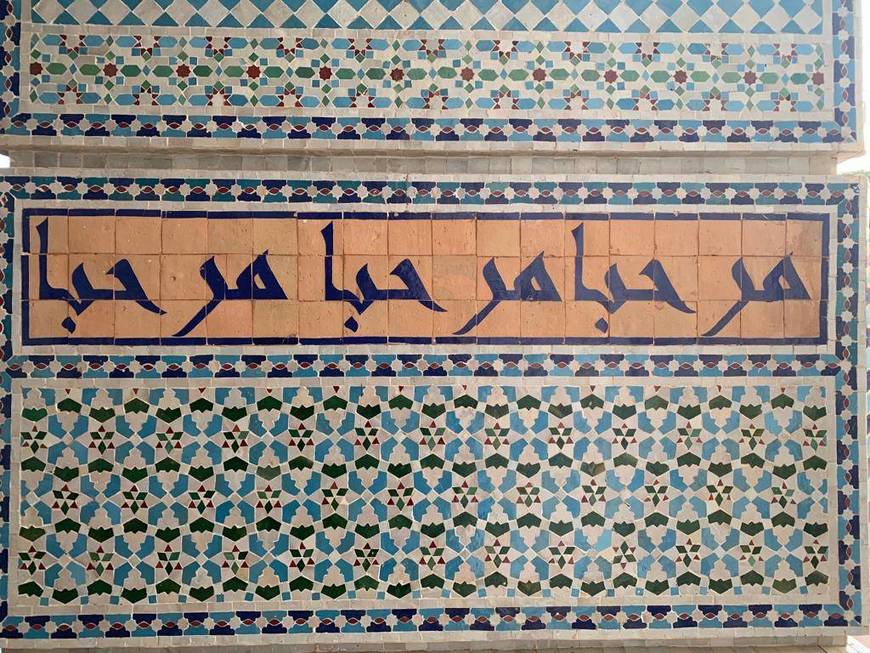 مرحبا مرحبا مرحبا